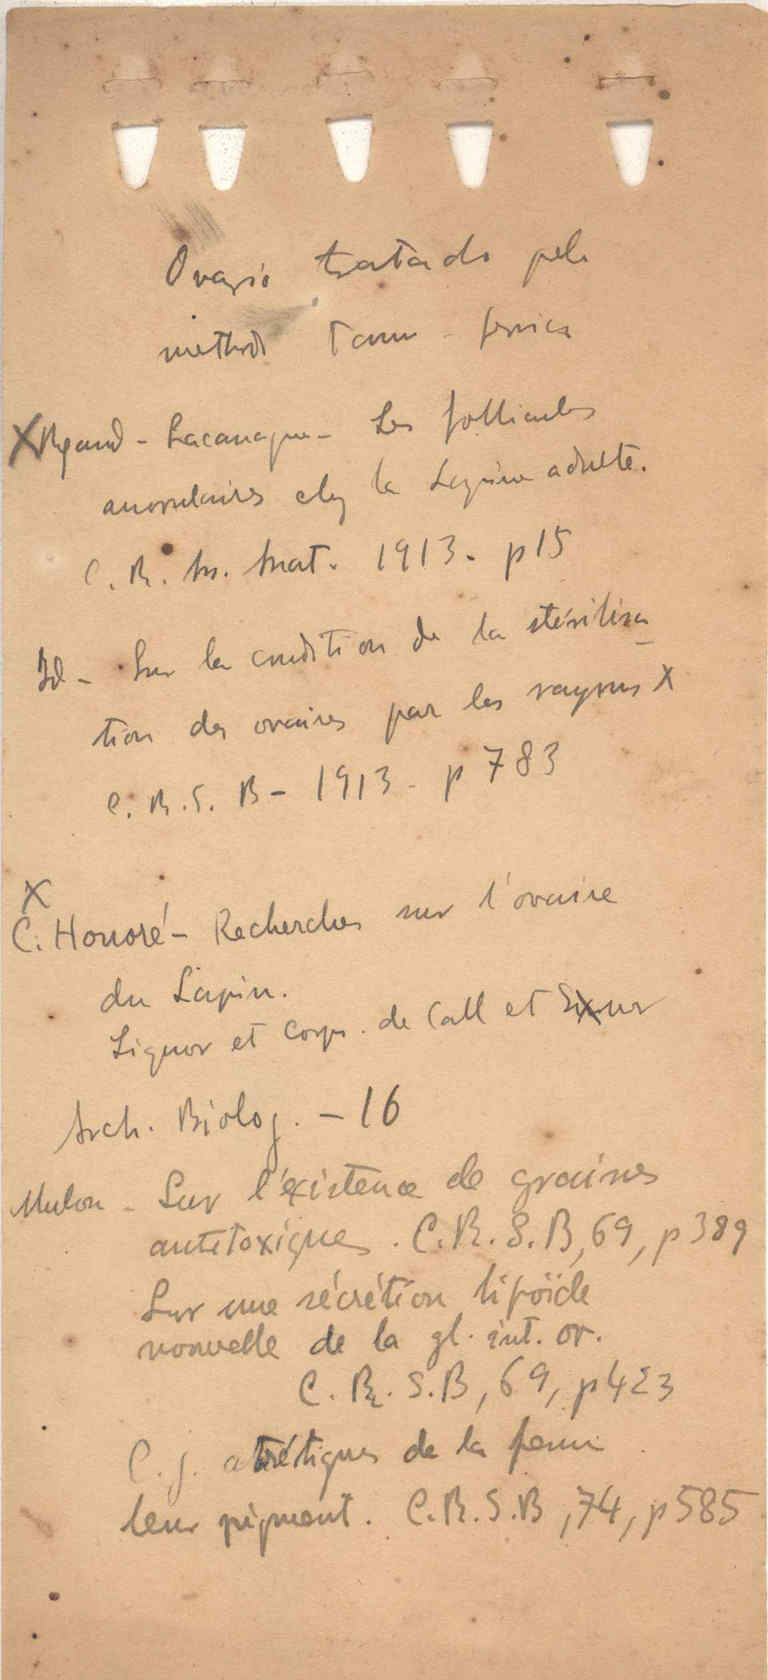 Ovario tratado pelo
methodo Tanno - ferrica
X Regaud - Lacassagne - Les follicules
anovulaires chez la Lapine adulte.
C. R. Ass. Anat. 1913 - p 15
Id - Sur la condition de la stérilisa
tion des ovaires par les rayons X
C. R. S. B - 1913 - p 783
X
C. Honoré - Recherches sur l'ovaire
du Lapin.
Liquor et Corps. de Call et Exner
Arch. Biolog. - 16
Mulon - Sur l'existence de graines
antitoxiques. C. R. S. B, 69, p 389
Sur une sécrétion lipoïde
nouvelle de la gl. int. ov.
C. R. S. B, 69, p 423
C. j. atrétiques de la femme
leur pigment. C. R. S. B, 74, p 585